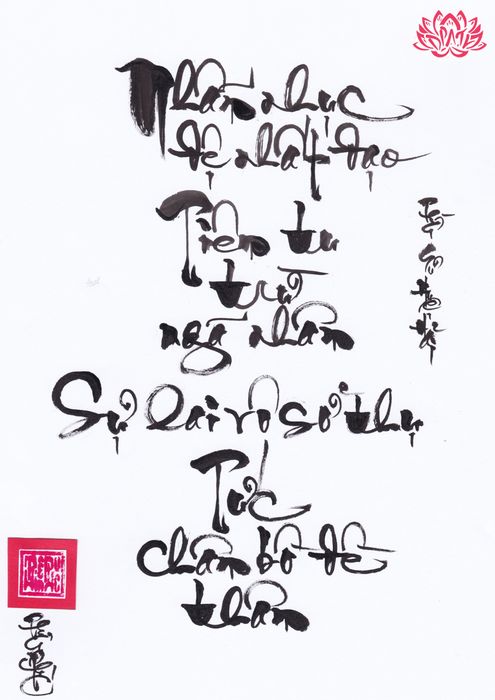 Nhẫn nhục
đệ nhất đạo
Tiên tu
trừ
ngã nhân
Sự lai vô sở thụ
Tức
chân bồ đề
thân